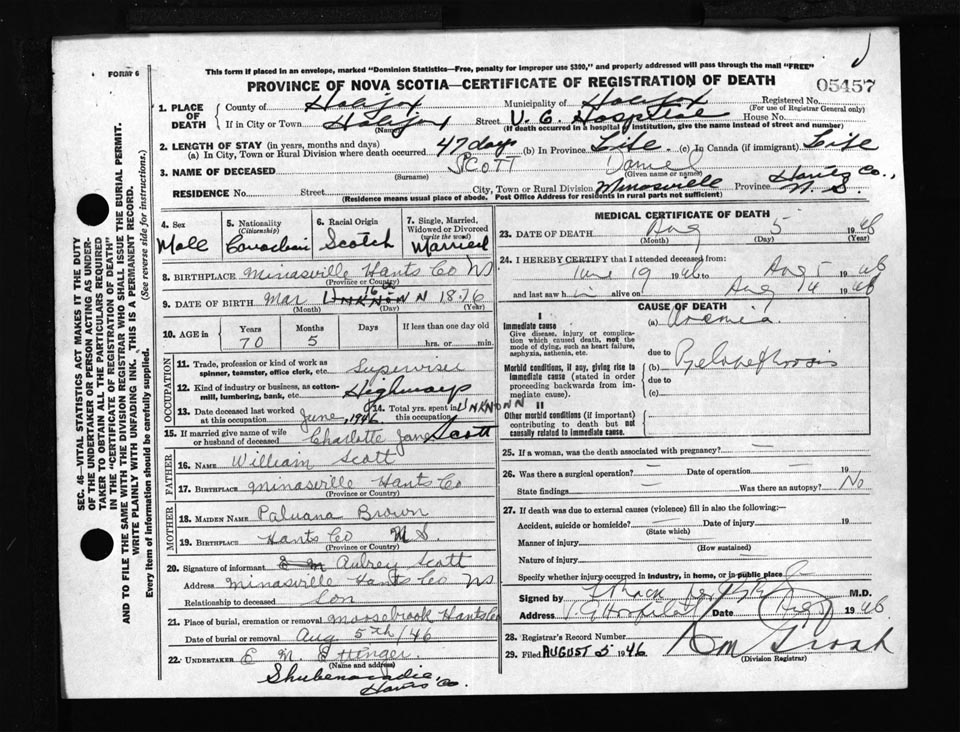 FORM 6
This form if placed in an envelope, marked "Dominion Statistics—Free, penalty for improper use $300," and properly addressed will pass through the mail "FREE"
PROVINCE OF NOVA SCOTIA—CERTIFICATE OF REGISTRATION OF DEATH
05457
1. PLACE OF DEATH County of Halifax Municipality of Halifax Registered No. (For use of Registrar General only)
If in City or Town Halifax (Name) Street V. G. Hospital House No.
(If death occurred in a hospital or institution, give the name instead of street and number)
2. LENGTH OF STAY (in years, months and days)
(a) In City, Town or Rural Division where death occurred 47 days (b) In Province Life (c) In Canada (if immigrant) Life
3. NAME OF DECEASED SCOTT (Surname) Daniel (Given name or names)
RESIDENCE No. Street City, Town or Rural Division Minasville Province Hants Co., N. S.
(Residence means usual place of abode. Post Office Address for residents in rural parts not sufficient)
SEC. 46—VITAL STATISTICS ACT MAKES IT THE DUTY
OF THE UNDERTAKER OR PERSON ACTING AS UNDER-
TAKER TO OBTAIN ALL THE PARTICULARS REQUIRED
IN THE "CERTIFICATE OF REGISTRATION OF DEATH"
AND TO FILE THE SAME WITH THE DIVISION REGISTRAR WHO SHALL ISSUE THE BURIAL PERMIT.
WRITE PLAINLY WITH UNFADING INK. THIS IS A PERMANENT RECORD.
Every item of information should be carefully supplied. (See reverse side for instructions.)
4. Sex Male
5. Nationality (Citizenship) Canadian
6. Racial Origin Scotch
7. Single, Married, Widowed or Divorced (write the word) Married
8. BIRTHPLACE Minasville Hants Co NS
(Province or County)
9. DATE OF BIRTH Mar 16 UNKNOWN 1876
(Month) (Day) (Year)
10. AGE in Years 70 Months 5 Days If less than one day old hrs. or min.
OCCUPATION
11. Trade, profession or kind of work as spinner, teamster, office clerk, etc. Supervisor
12. Kind of industry or business, as cotton-mill, lumbering, bank, etc. Highways
13. Date deceased last worked at this occupation June, 1946 14. Total yrs. spent in this occupation UNKNOWN
15. If married give name of wife or husband of deceased Charlotte Jane Scott
FATHER
16. NAME William Scott
17. BIRTHPLACE Minasville Hants Co
(Province or Country)
MOTHER
18. MAIDEN NAME Paluana Brown
19. BIRTHPLACE Hants Co N S.
(Province or Country)
20. Signature of informant Aubrey Scott
Address Minasville Hants Co NS
Relationship to deceased Son
21. Place of burial, cremation or removal Moosebrook Hants Co
Date of burial or removal Aug 5th/46
22. UNDERTAKER E M Ettinger
(Name and address)
Shubenacadie
Hants Co.
MEDICAL CERTIFICATE OF DEATH
23. DATE OF DEATH Aug 5 1946
(Month) (Day) (Year)
24. I HEREBY CERTIFY that I attended deceased from:
June 19 1946 to Aug 5 1946
and last saw him alive on Aug 1946
CAUSE OF DEATH
I
Immediate cause
Give disease, injury or complication which caused death, not the mode of dying, such as heart failure, asphyxia, asthenia, etc.
(a) Uremia
due to
Morbid conditions, if any, giving rise to immediate cause (stated in order proceeding backwards from immediate cause).
(b) Pyelonephrosis
due to
(c)
II
Other morbid conditions (if important) contributing to death but not causally related to immediate cause.
25. If a woman, was the death associated with pregnancy? —
26. Was there a surgical operation — Date of operation — 19
State findings — Was there an autopsy? No
27. If death was due to external causes (violence) fill in also the following:—
Accident, suicide or homicide? Date of injury 19
(State which)
Manner of injury
(How sustained)
Nature of injury
Specify whether injury occurred in industry, in home, or in public place
Signed by M.D.
Address V. G. Hospital Date Aug 1946
28. Registrar's Record Number
29. Filed AUGUST 5 1946
(Division Registrar)